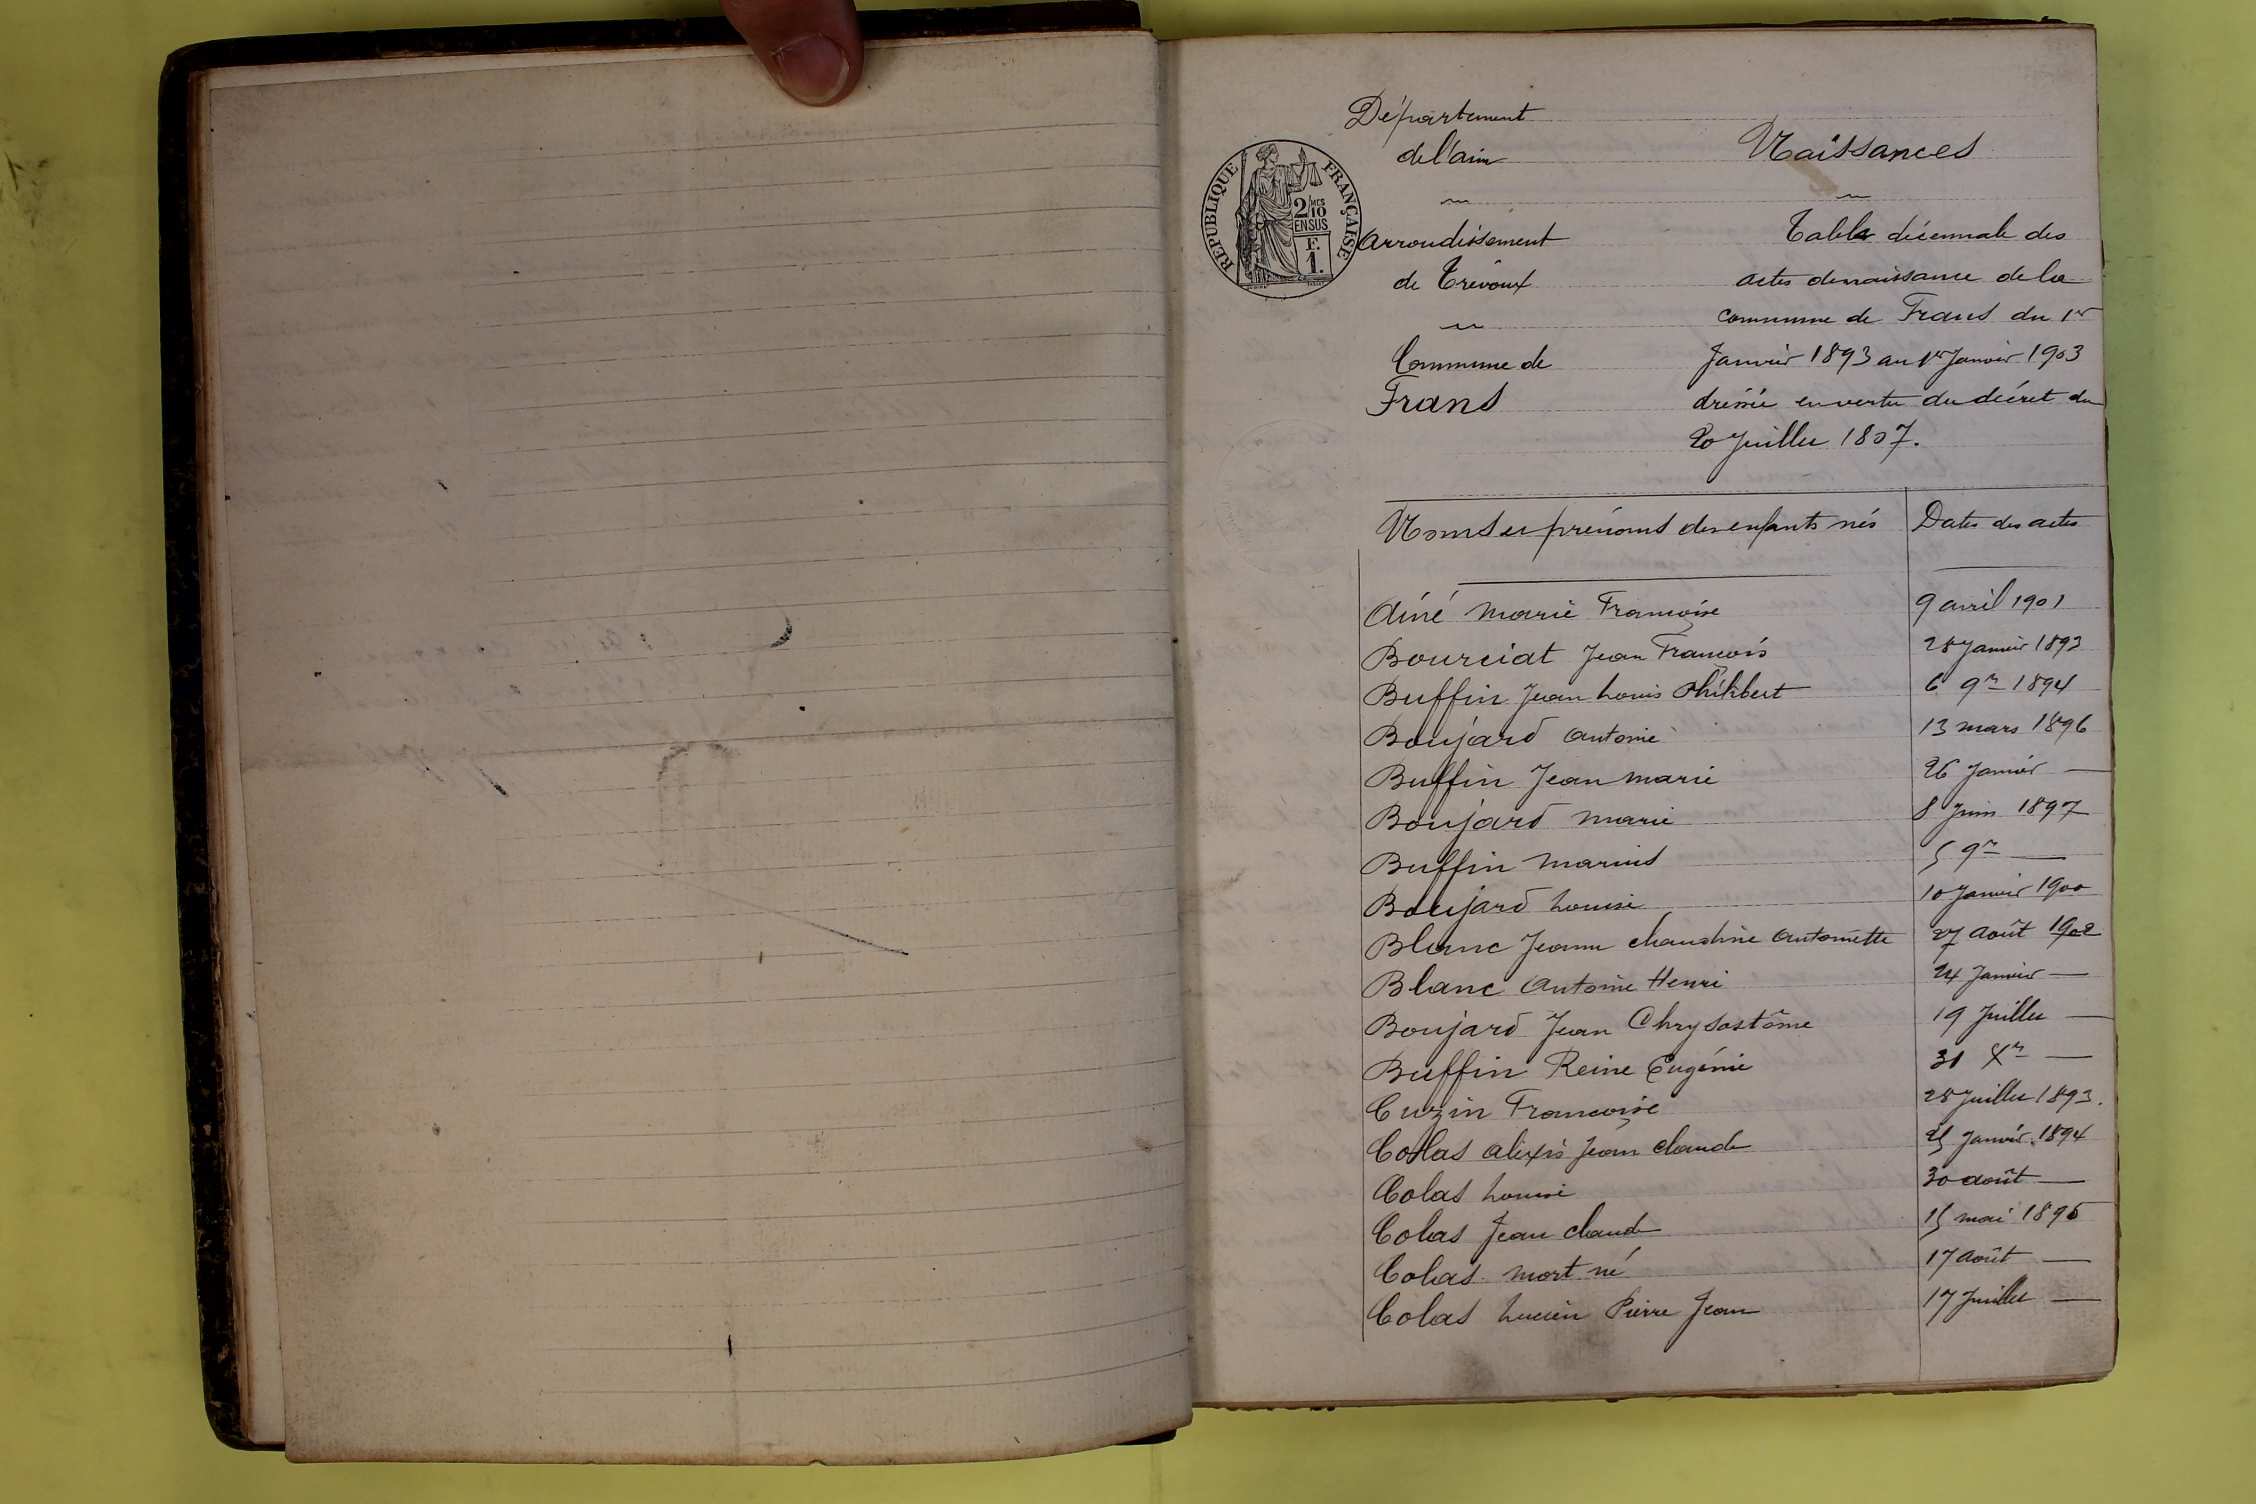 Département
de l'ain
RÉPUBLIQUE FRANÇAISE
2/10 MES
EN SUS
F.
1.
arrondissement
de Trévoux
Commune de
Frans
Naissances
Table décennale des
actes de naissance de la
commune de Frans du 1er
Janvier 1893 au 1er Janvier 1903
dressée en vertu du décret du
20 Juillet 1807.
Noms et prénoms des enfants nés Dates des actes
Ainé Marie Françoise 9 avril 1901
Bourciat Jean François 28 Janvier 1893
Buffin Jean Louis Philibert 6 9re 1894
Boujard Antoine 13 mars 1896
Buffin Jean marie 26 Janvier —
Boujard Marie 8 Juin 1897
Buffin Marius 5 9re —
Boujard Louise 10 Janvier 1900
Blanc Jeanne Claudine Antoinette 27 Août 1902
Blanc Antoine Henri 24 Janvier —
Boujard Jean Chrysostôme 19 Juillet —
Buffin Reine Eugénie 31 Xre —
Cuzin Françoise 28 Juillet 1893.
Colas alexis Jean Claude 25 Janvier 1894
Colas Louise 30 août —
Colas Jean Claude 15 mai 1896
Colas mort né 17 Août —
Colas Lucien Pierre Jean 17 Juillet —